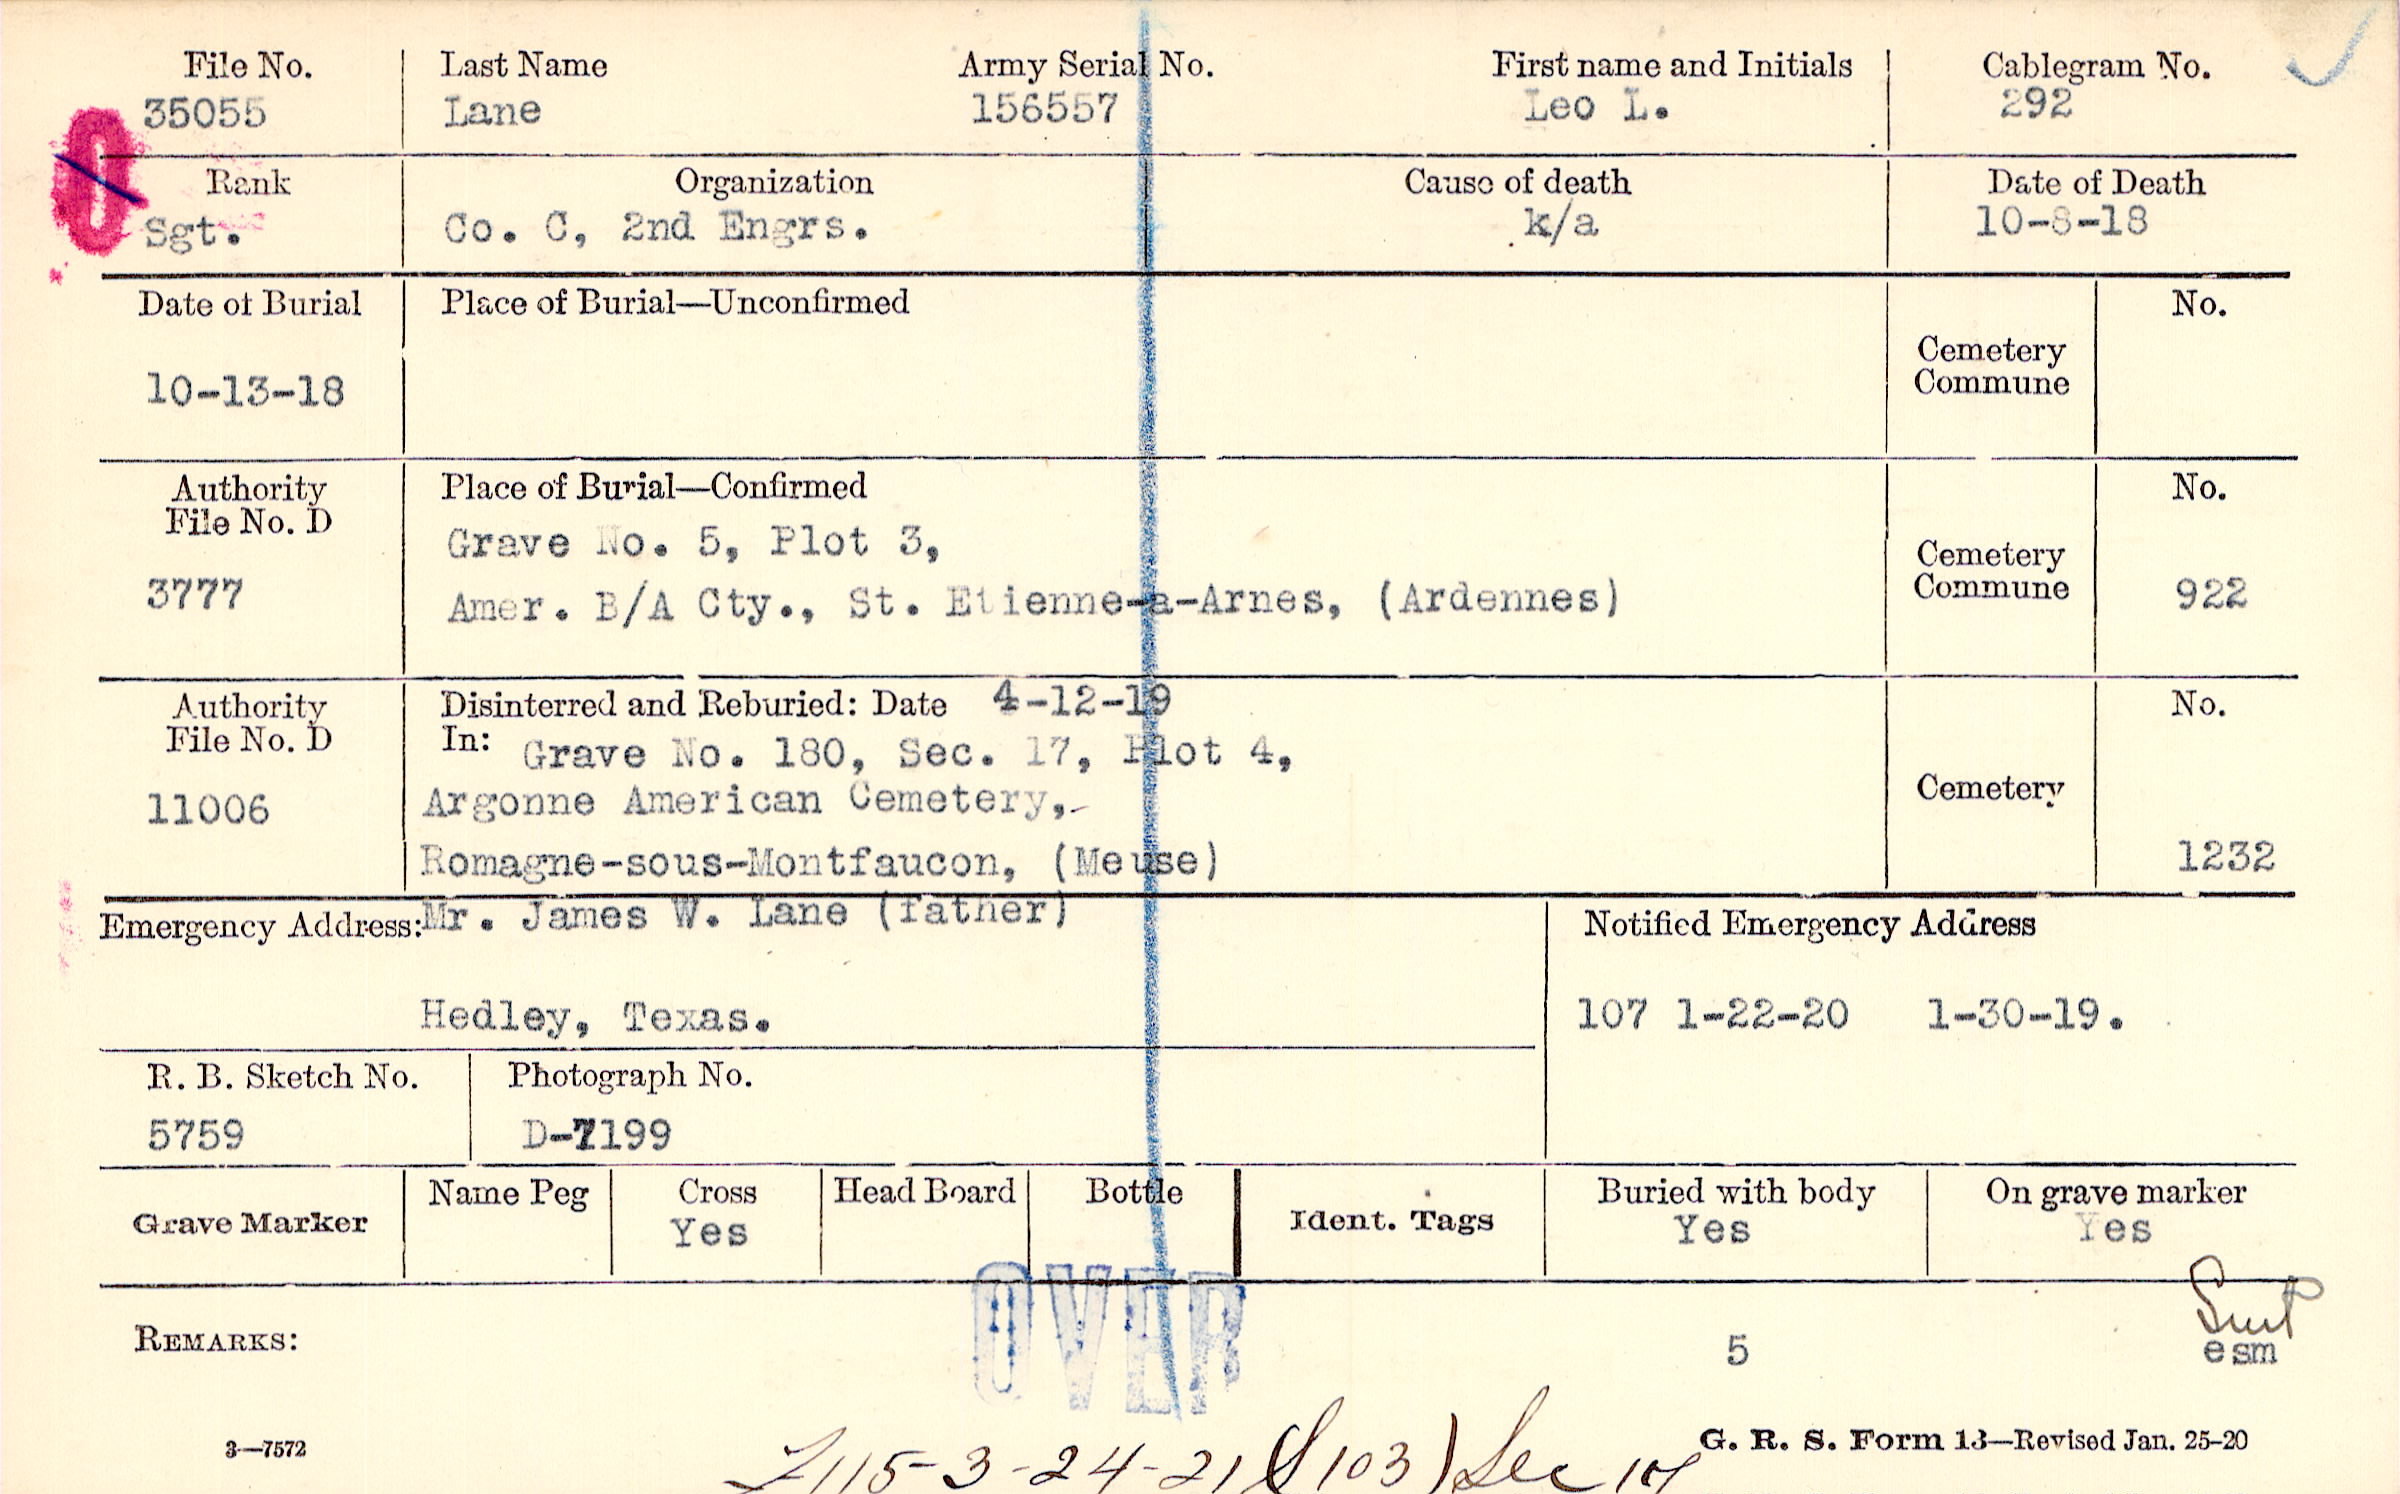 File No. Last Name Army Serial No. First name and Initials Cablegram No.
35055 Lane 156557 Leo L. 292
O
Rank Organization Cause of death Date of Death
Sgt. Co. C, 2nd Engrs. k/a 10-8-18
Date of Burial Place of Burial—Unconfirmed No.
Cemetery
Commune
10-13-18
Authority Place of Burial—Confirmed No.
File No. D
Grave No. 5, Plot 3,
Cemetery
3777 Amer. B/A Cty., St. Etienne-a-Arnes, (Ardennes) Commune 922
Authority Disinterred and Reburied: Date 4-12-19 No.
File No. D In: Grave No. 180, Sec. 17, Plot 4,
11006 Argonne American Cemetery, Cemetery
Romagne-sous-Montfaucon, (Meuse) 1232
Emergency Address: Mr. James W. Lane (father) Notified Emergency Address
Hedley, Texas. 107 1-22-20 1-30-19.
R. B. Sketch No. Photograph No.
5759 D-7199
Grave Marker Name Peg Cross Head Board Bottle Ident. Tags Buried with body On grave marker
Yes Yes Yes
OVER
REMARKS: 5 esm
3—7572 G. R. S. Form 13—Revised Jan. 25-20
115-3-24-21 (S 103) Sec 17